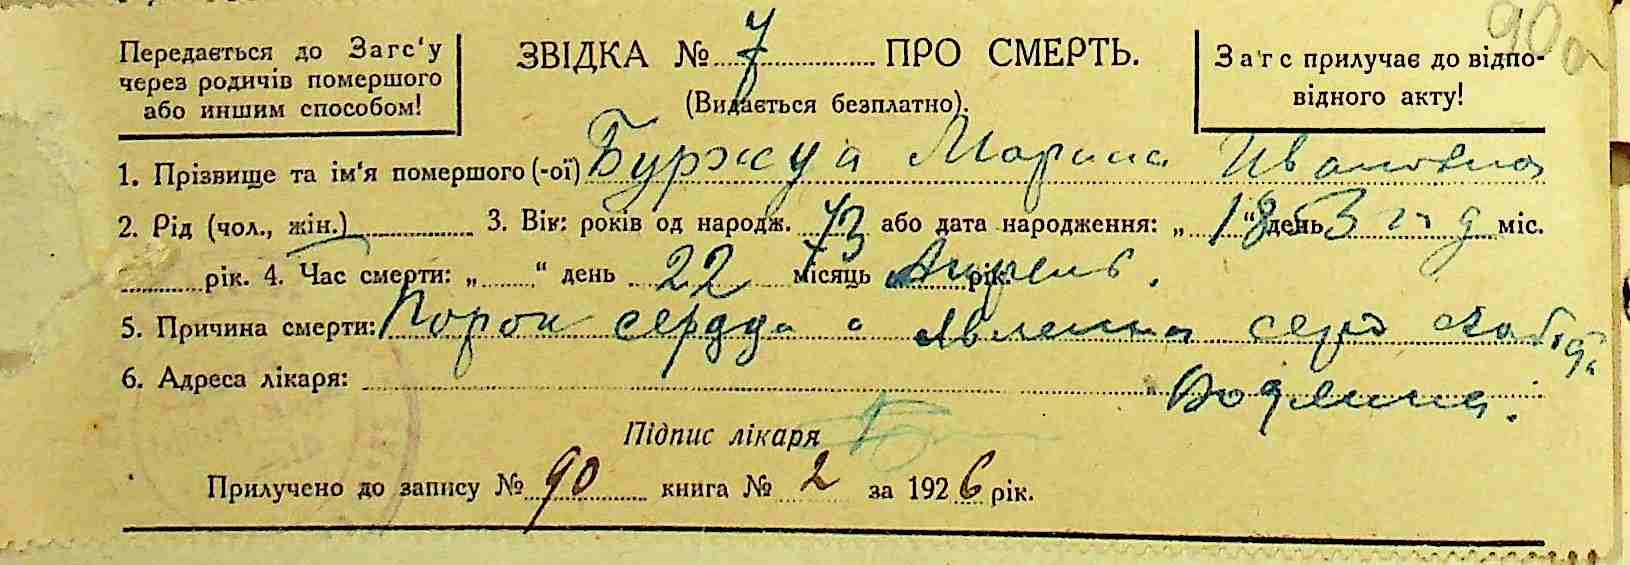 90а
Передається до Загс‘у
через родичів помершого
або иншим способом!
ЗВІДКА № 7 ПРО СМЕРТЬ.
(Видається безплатно).
Загс прилучає до відпо-
відного акту!
1. Прізвище та ім‘я помершого (-ої) Буржуа Марина Ивановна
2. Рід (чол., жін.) 3. Вік: років од народж. 73 або дата народження: „ 1853 год “ день міс.
рік. 4. Час смерти: „ “ день 22 місяць Апрель. рік.
5. Причина смерти: Порок сердца и явления серд слабости
6. Адреса лікаря:
Підпис лікаря
Прилучено до запису № 90 книга № 2 за 1926 рік.